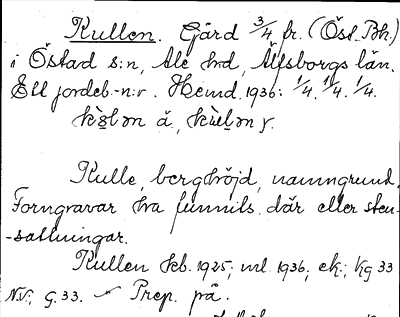 Kullen. Gård 3/4 fr. (Öst. Bh.)
i Östad s:n, Ale hd, Älfsborgs län.
Ett jordeb.-n:r. Hemd. 1936: 1/4. 1/4. 1/4.
Kulle, berghöjd, namngrund.
Forngravar ha funnits där eller sten-
-sättningar.
Kullen kb. 1925; ml. 1936; ek.; Kg 33
N.V.; G. 33. Prep. på.